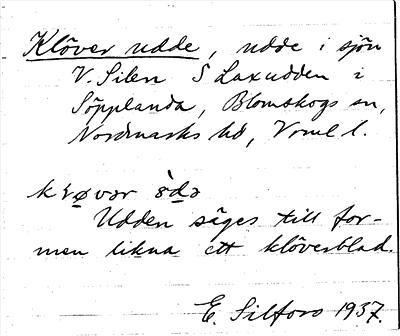 Klöver udde, udde i sjön
V. Silen S Laxudden i
Söpplanda, Blomskogs sn,
Nordmarks hd, Vrml l.
kløvər ùdə
Udden säges till for-
men likna ett klöverblad.
E. Silfors 1937.